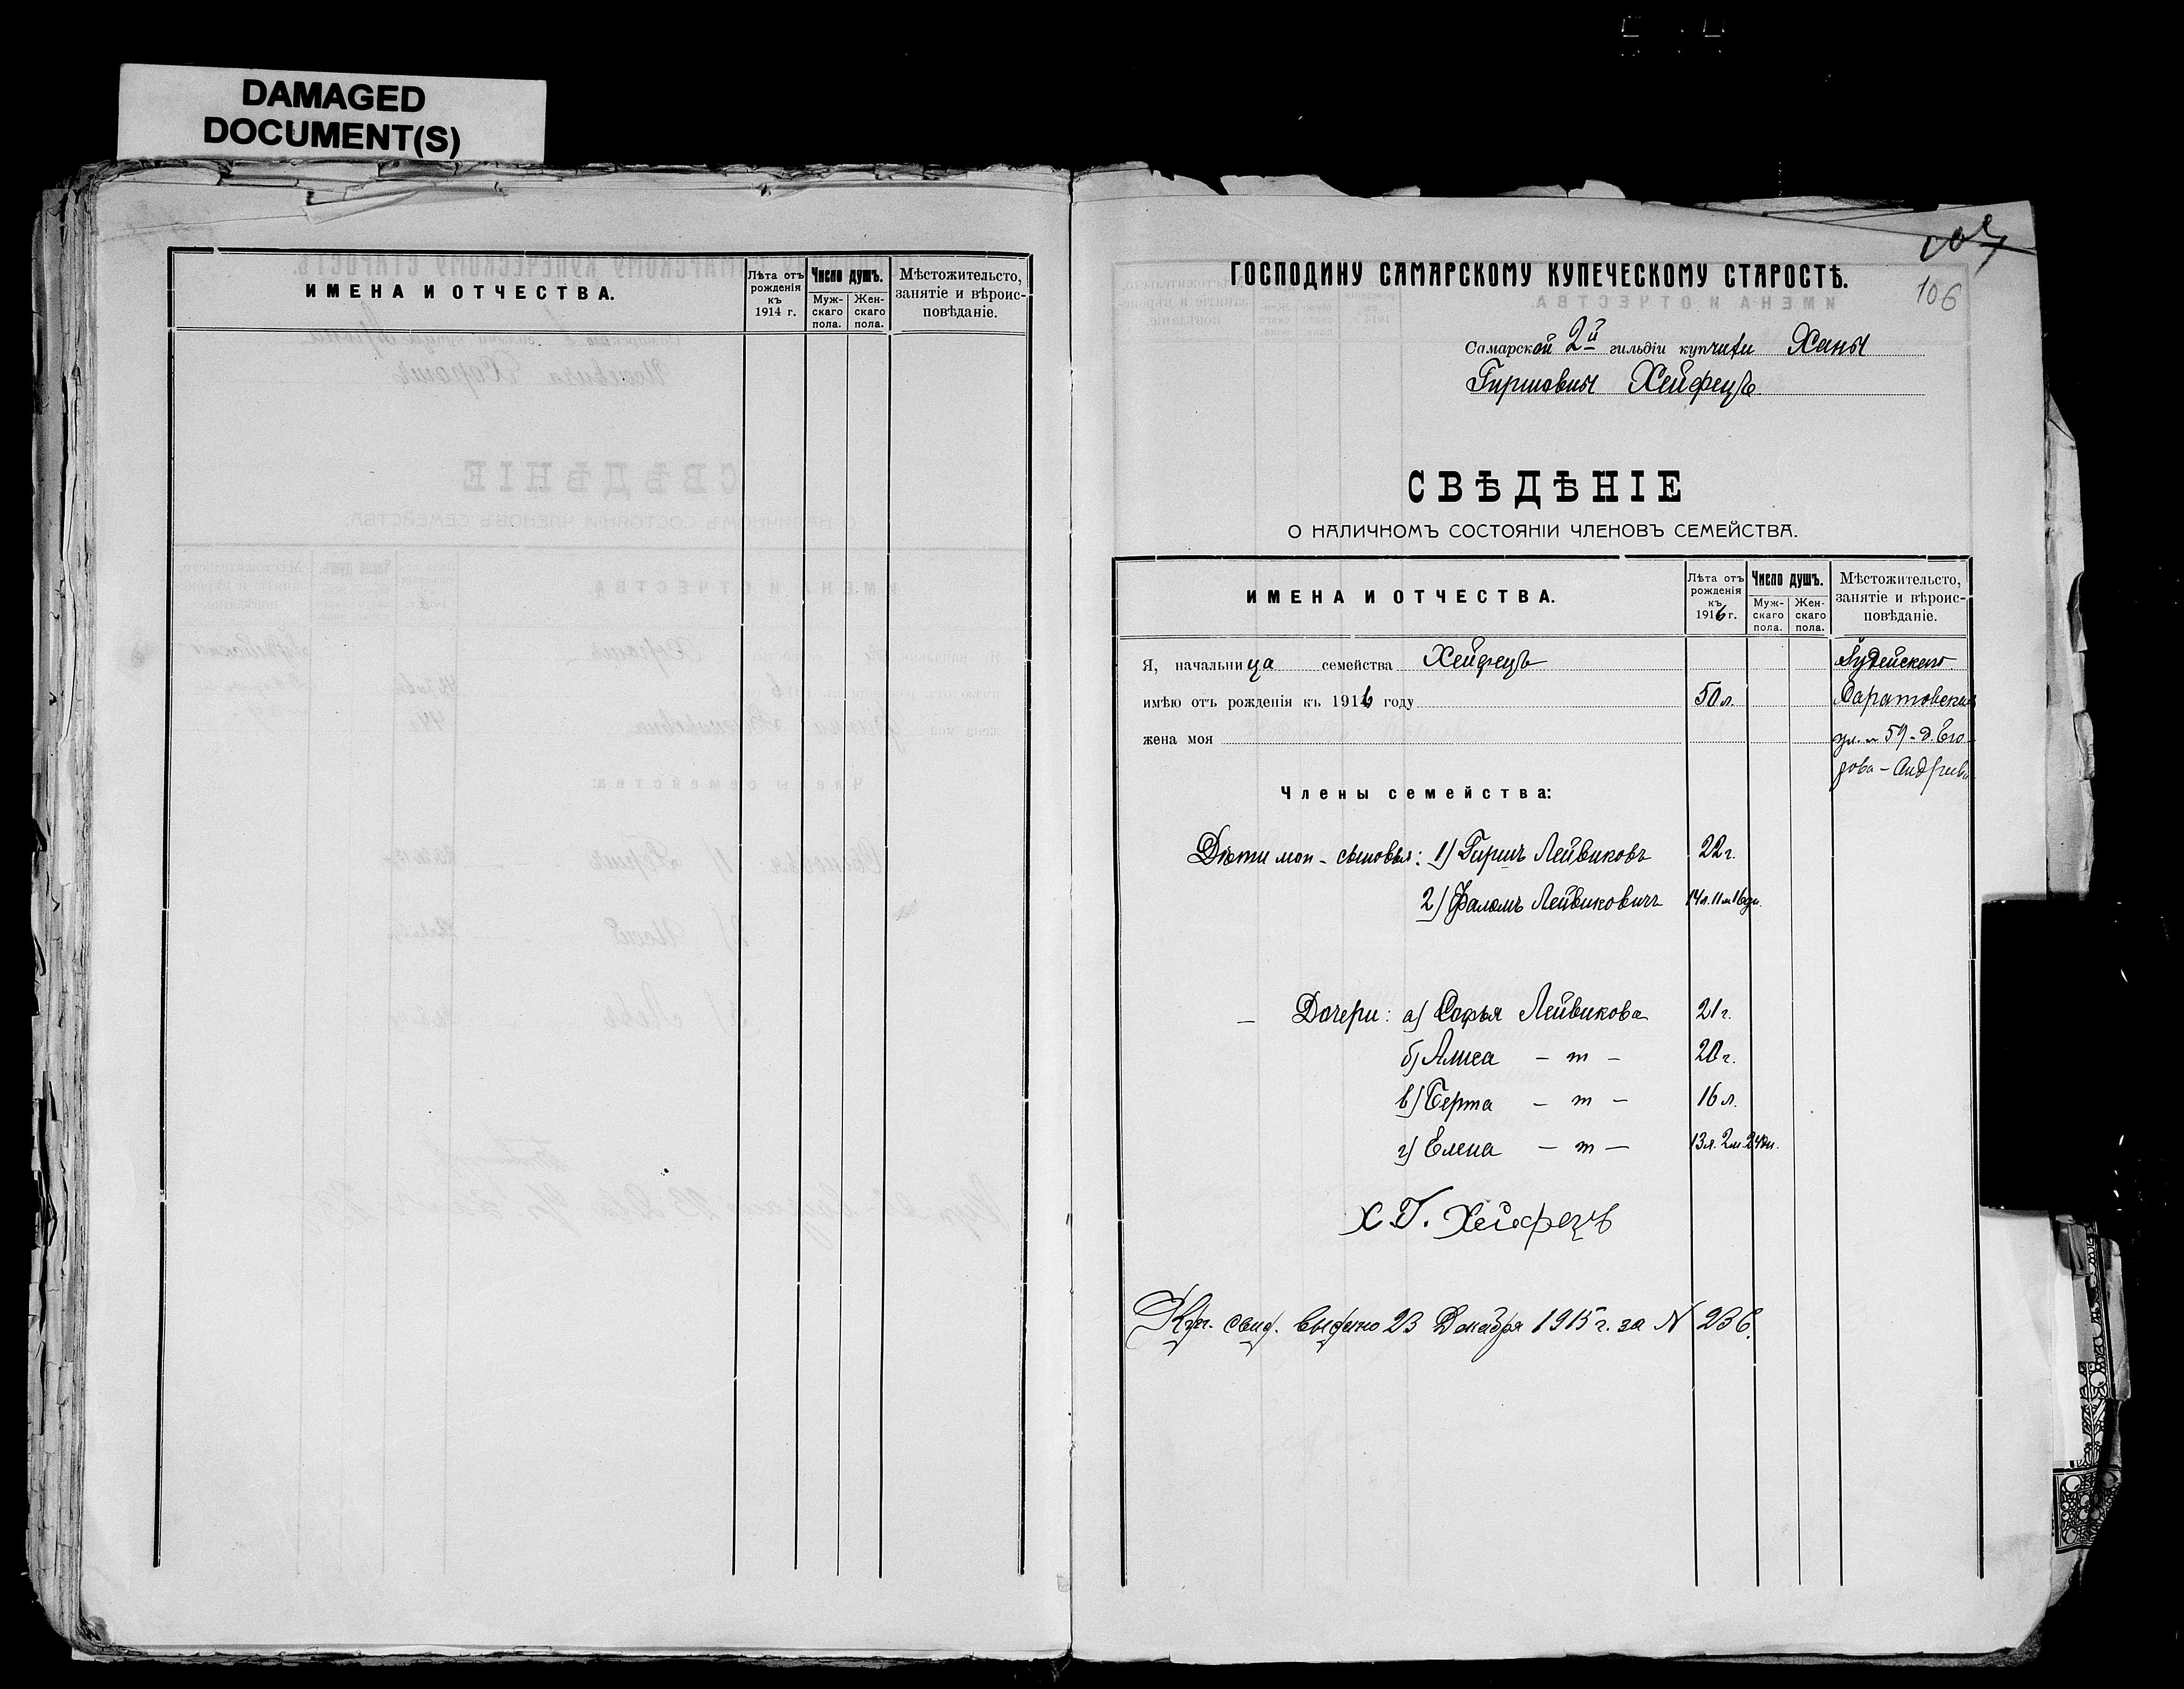 DAMAGED
DOCUMENT(S)
ИМЕНА И ОТЧЕСТВА.
Лѣта отъ
рожденія
къ
1914 г.
Число душъ.
Муж-
скаго
пола.
Жен-
скаго
пола.
Мѣстожительсто,
занятіе и вѣроис-
повѣданіе.
106
ГОСПОДИНУ САМАРСКОМУ КУПЕЧЕСКОМУ СТАРОСТѢ.
Самарской 2й гильдіи купчихи Ханы
Гиршовны Хейфецъ
СВѢДѢНІЕ
О НАЛИЧНОМЪ СОСТОЯНІИ ЧЛЕНОВЪ СЕМЕЙСТВА.
ИМЕНА И ОТЧЕСТВА.
Лѣта отъ
рожденія
къ
1916 г.
Число душъ.
Муж-
скаго
пола.
Жен-
скаго
пола.
Мѣстожительсто,
занятіе и вѣроис-
повѣданіе.
Я, начальница семейства Хейфецъ Іудейскаго
имѣю отъ рожденія къ 1916 году 50 л. Саратовская
жена моя ул. 59 д. Его
рова - Андреева
Члены семейства:
Дѣти мои - сыновья: 1) Гиршъ Лейвиковъ 22 г.
2) Фалкъ Лейвиковичъ 14 л. 11 м. 16 дн.
Дочери: а) Софья Лейвикова 21 г.
б) — т — 20 г.
в) Берта — т — 16 л.
г) Елена — т — 13 л. 2 м. 24 дн.
Х. Г. Хейфецъ
Куп. свид. выдано 23 Декабря 1915 г. за N 236.